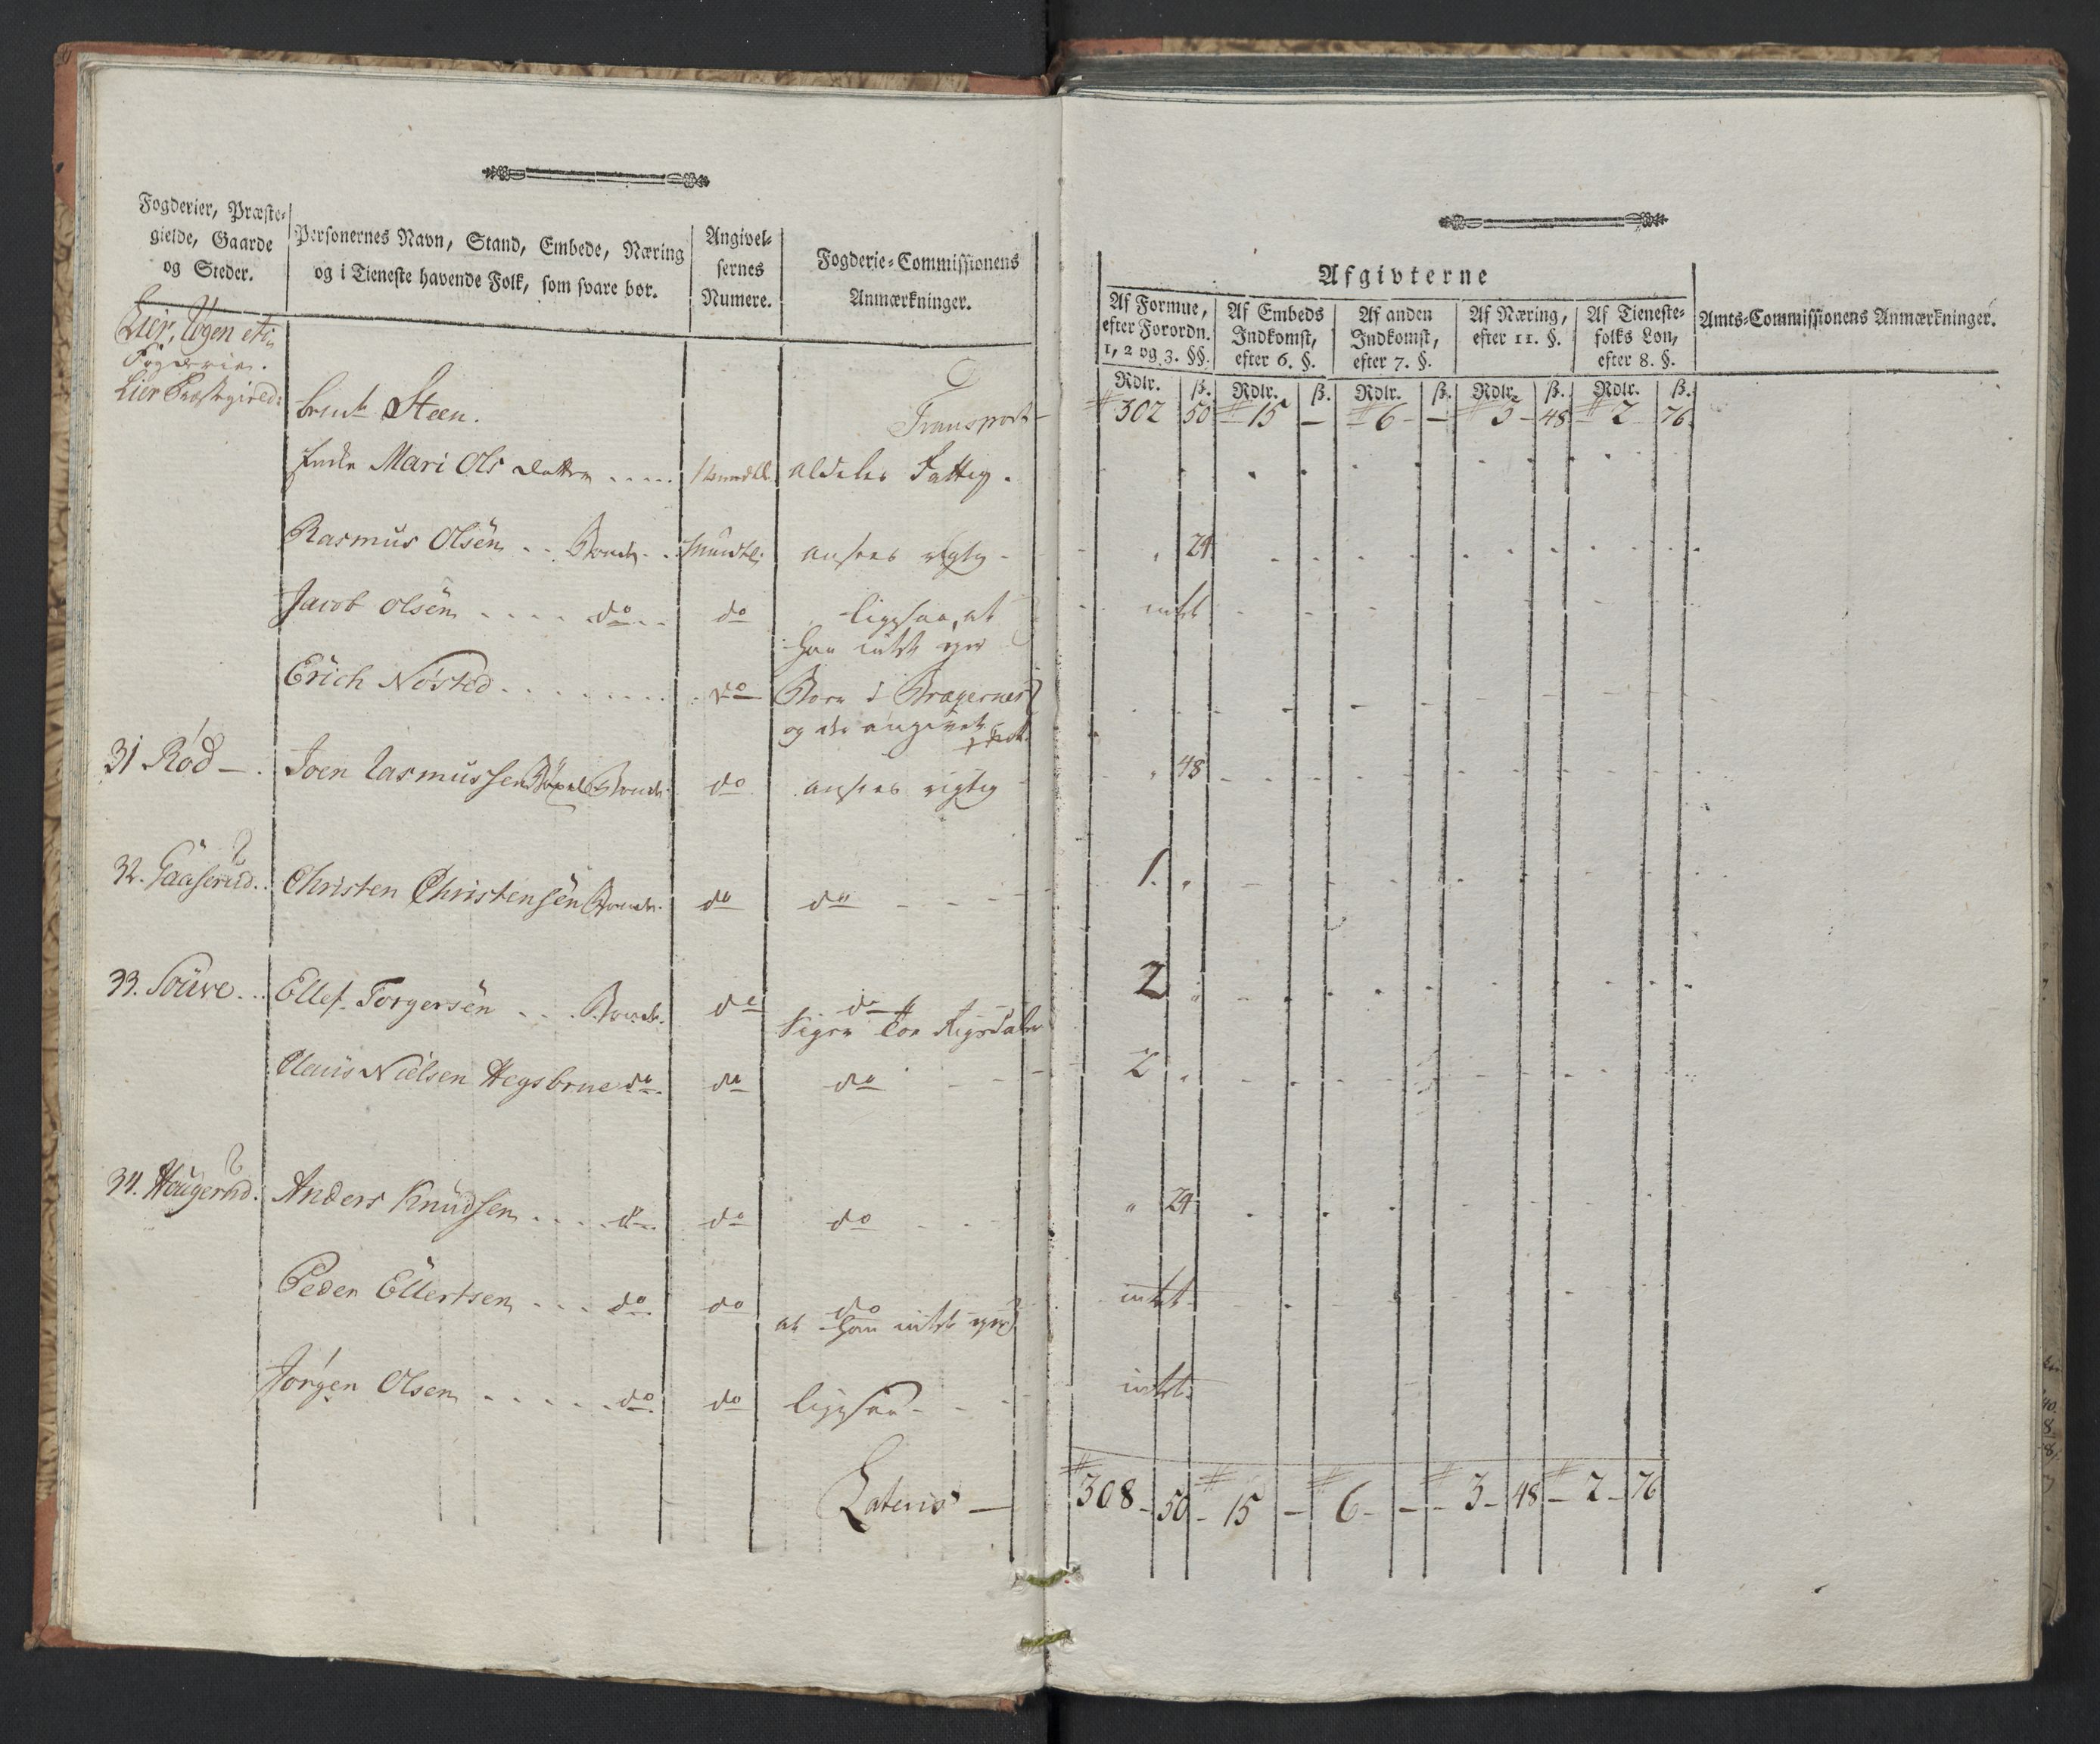 Fogderier, Præste-
gielde, Gaarde
og Steder.
Personernes Navn, Stand, Embede, Næring
og i Tieneste havende Folk, som svare bør.
Angivel-
sernes
Numere.
Fogderie-Commissionens
Anmærkninger.
Afgivterne
Af Formue,
efter Forordn.
1, 2 og 3. §§.
Af Embeds
Indkomst,
efter 6. §.
Af anden
Indkomst,
efter 7. §.
Af Næring,
efter 11. §.
Af Tieneste-
folks Løn,
efter 8. §.
Amts-Commissionens Anmærkninger.
Rdlr. ß. Rdlr. ß. Rdlr. ß. Rdlr. ß. Rdlr. ß.
Lier,
Fogderie.
Lier Præstegield:
Steen. Transport — 302 50 15 — 6 — 3 48 2 76
Enke Mari Ols Datter ..... Mundtl. aldeles Fattig.
Rasmus Olsen .. Bonde .. Mundtl. ansees rigtig - " 24
Jacob Olsen .... do .. do ligesaa, at intet
han intet eyer
Erich Nøsted ......... do Boer i Bragernes
og der angivet
31 Rød —. Joen Rasmussen Bonde do ansees rigtig " 48
32. Gaaserud.. Christen Christensen Bonde. do do - - - 1. "
33. Souve... Ellef Torgersen ... Bonde. do do 2 "
siger Toe Rigsdaler
Claus Nielsen Hegsbrue do. do do - - - 2 "
34. Haugerud. Anders Knudsen .... do. do do - - - " 24
Peder Ellertsen ... do do do intet
at han intet eyer
Jørgen Olsen ...... do. do ligesaa - - - intet.
Lateris — 308 - 50 - 15 — 6 - — 3 - 48 — 2 - 76